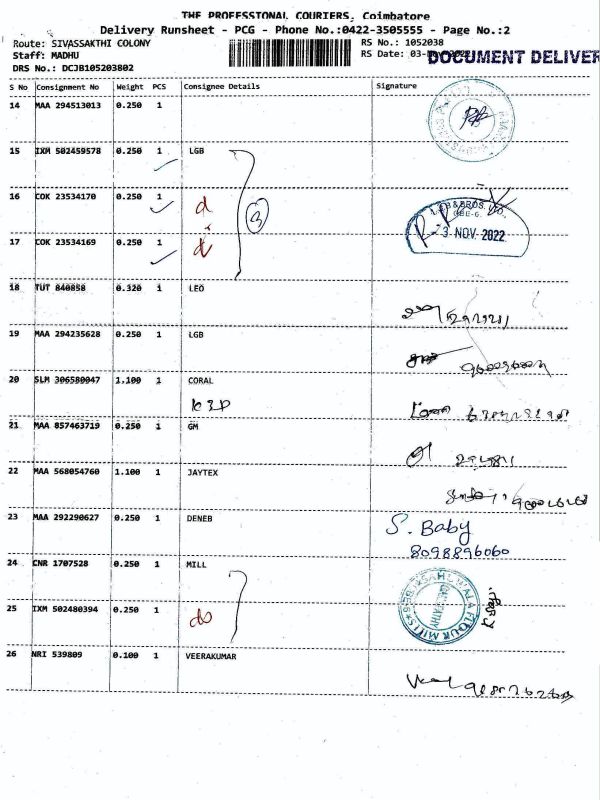 THE PROFESSIONAL COURIERS, Coimbatore
Delivery Runsheet - PCG - Phone No.:0422-3505555 - Page No.:2
Route: SIVASSAKTHI COLONY RS No.: 1052038
Staff: MADHU RS Date: 03-
DOCUMENT DELIVER
DRS No.: DCJB105203802
S No Consignment No Weight PCS Consignee Details Signature
14 MAA 294513013 0.250 1
15 IXM 502459578 0.250 1 LGB
16 COK 23534170 0.250 1 d
3
& BROS. LTD.
CBE-6.
-3 NOV. 2022
17 COK 23534169 0.250 1
18 TUT 840858 0.320 1 LEO
19 MAA 294235628 0.250 1 LGB
20 SLM 306580047 1.100 1 CORAL
21 MAA 857463719 0.250 1 GM
22 MAA 568054760 1.100 1 JAYTEX
23 MAA 292290627 0.250 1 DENEB
S. Baby
8098896060
24 CNR 1707528 0.250 1 MILL
FLOUR MILLS
25 IXM 502480394 0.250 1 do
26 NRI 539809 0.100 1 VEERAKUMAR